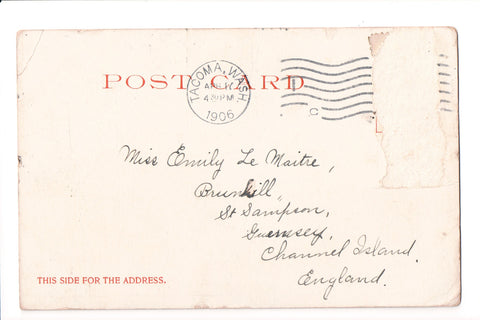 POST CARD
TACOMA, WASH
4 30 PM
1906
C
Miss Emily Le Maitre,
Brunhill,
St Sampson,
Guernsey,
Channel Island.
England.
THIS SIDE FOR THE ADDRESS.